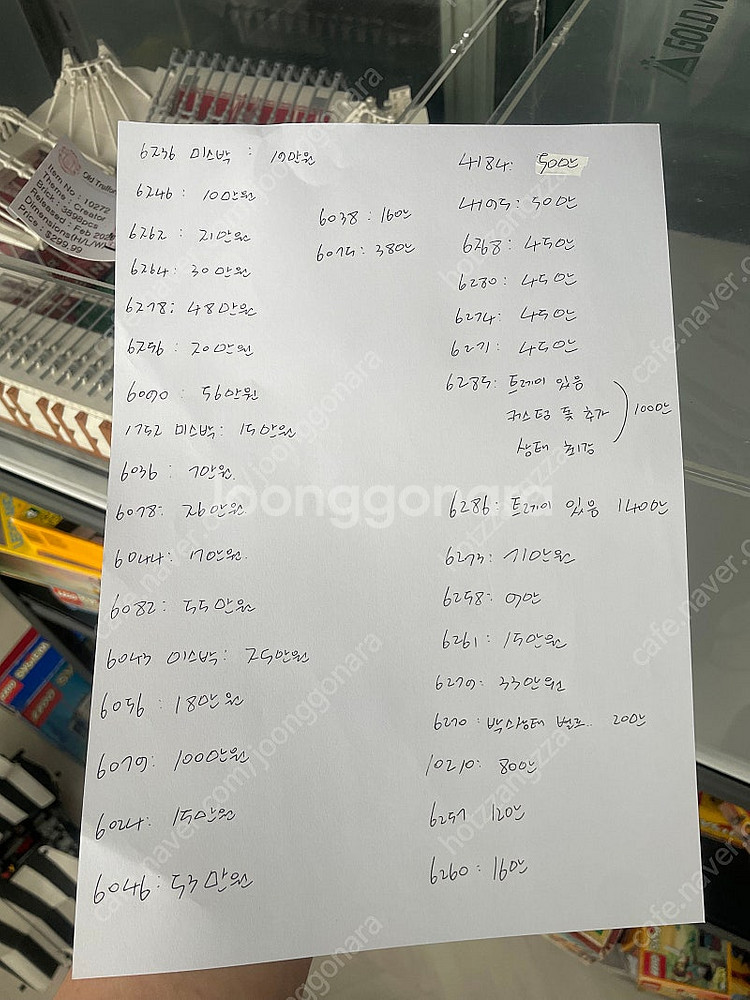 6236 미스박 : 19만원
6246 : 10만원
6262 : 21만원
6264 : 30만원
6278 : 48만원
6256 : 20만원
6090 : 56만원
1752 미스박 : 15만원
6036 : 7만원.
6078 : 26만원
6044 : 70만원.
6082 : 55만원
6043 미스박 : 25만원
6056 : 18만원
6079 : 100만원
6024 : 15만원
6046 : 53만원
6038 : 160만
6075 : 380만
4184 : 50만
4195 : 50만
6268 : 45만
6280 : 45만
6274 : 45만
6271 : 45만
6285 : 트레이 있음
커스텀 돛 추가
상태 최강
100만
6286 : 트레이 있음 140만
6273 : 710만원
6258 : 9만
6261 : 15만원
6279 : 33만원
6270 : 박스상태 별로.. 20만
10210 : 80만
6257 120만
6260 : 16만
Old Traffor
Item No : 10272
Theme : Creator
Brick : 3898pcs
Released : Feb 202
Dimensions(H/L/W)
Price : $299.99
GOLD
LEGO SYSTEM
LEGO
joonggonara
cafe.naver.com/joonggonara
hotzzangzza